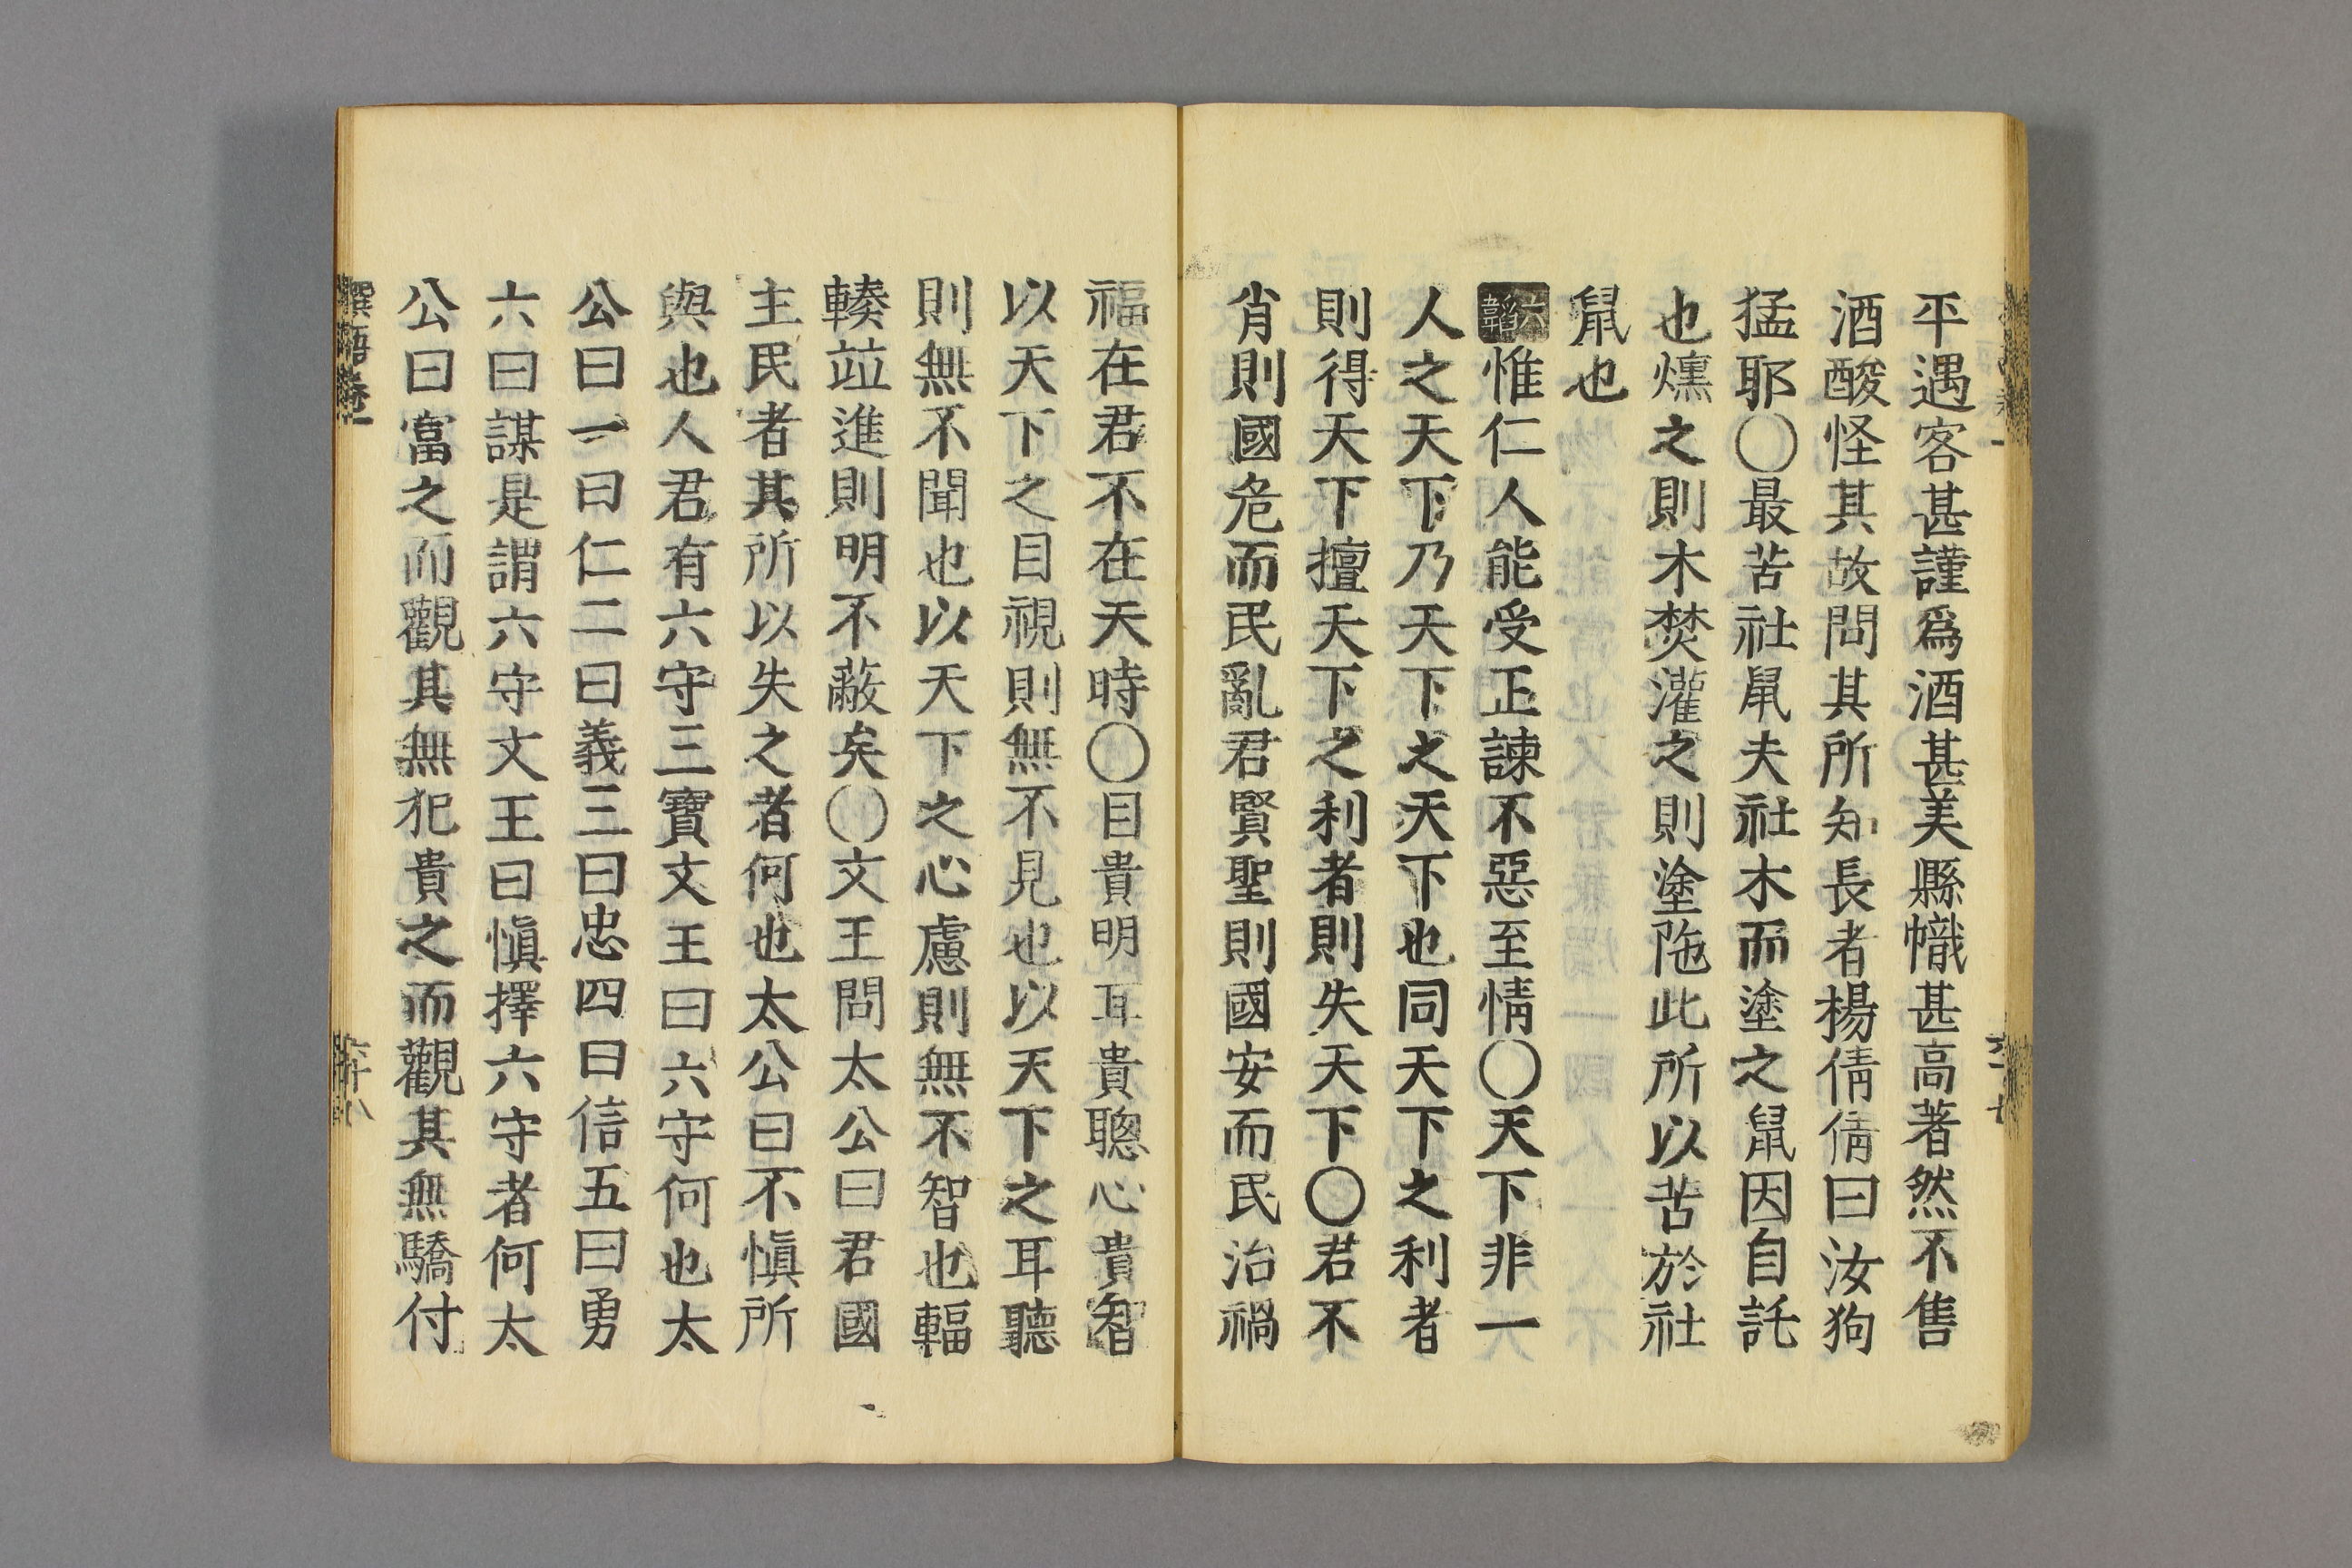 平遇客甚謹爲酒甚美縣幟甚高著然不售
酒酸怪其故問其所知長者楊倩倩曰汝狗
猛耶〇最苦社鼠夫社木而塗之鼠因自託
也燻之則木焚灌之則塗陁此所以苦於社
鼠也
六韜惟仁人能受正諫不惡至情〇天下非一
人之天下乃天下之天下也同天下之利者
則得天下擅天下之利者則失天下〇君不
肖則國危而民亂君賢聖則國安而民治禍
福在君不在天時〇目貴明耳貴聰心貴智
以天下之目視則無不見也以天下之耳聽
則無不聞也以天下之心慮則無不智也輻
輳竝進則明不蔽矣〇文王問太公曰君國
主民者其所以失之者何也太公曰不愼所
與也人君有六守三寶文王曰六守何也太
公曰一曰仁二曰義三曰忠四曰信五曰勇
六曰謀是謂六守文王曰愼擇六守者何太
公曰富之而觀其無犯貴之而觀其無驕付